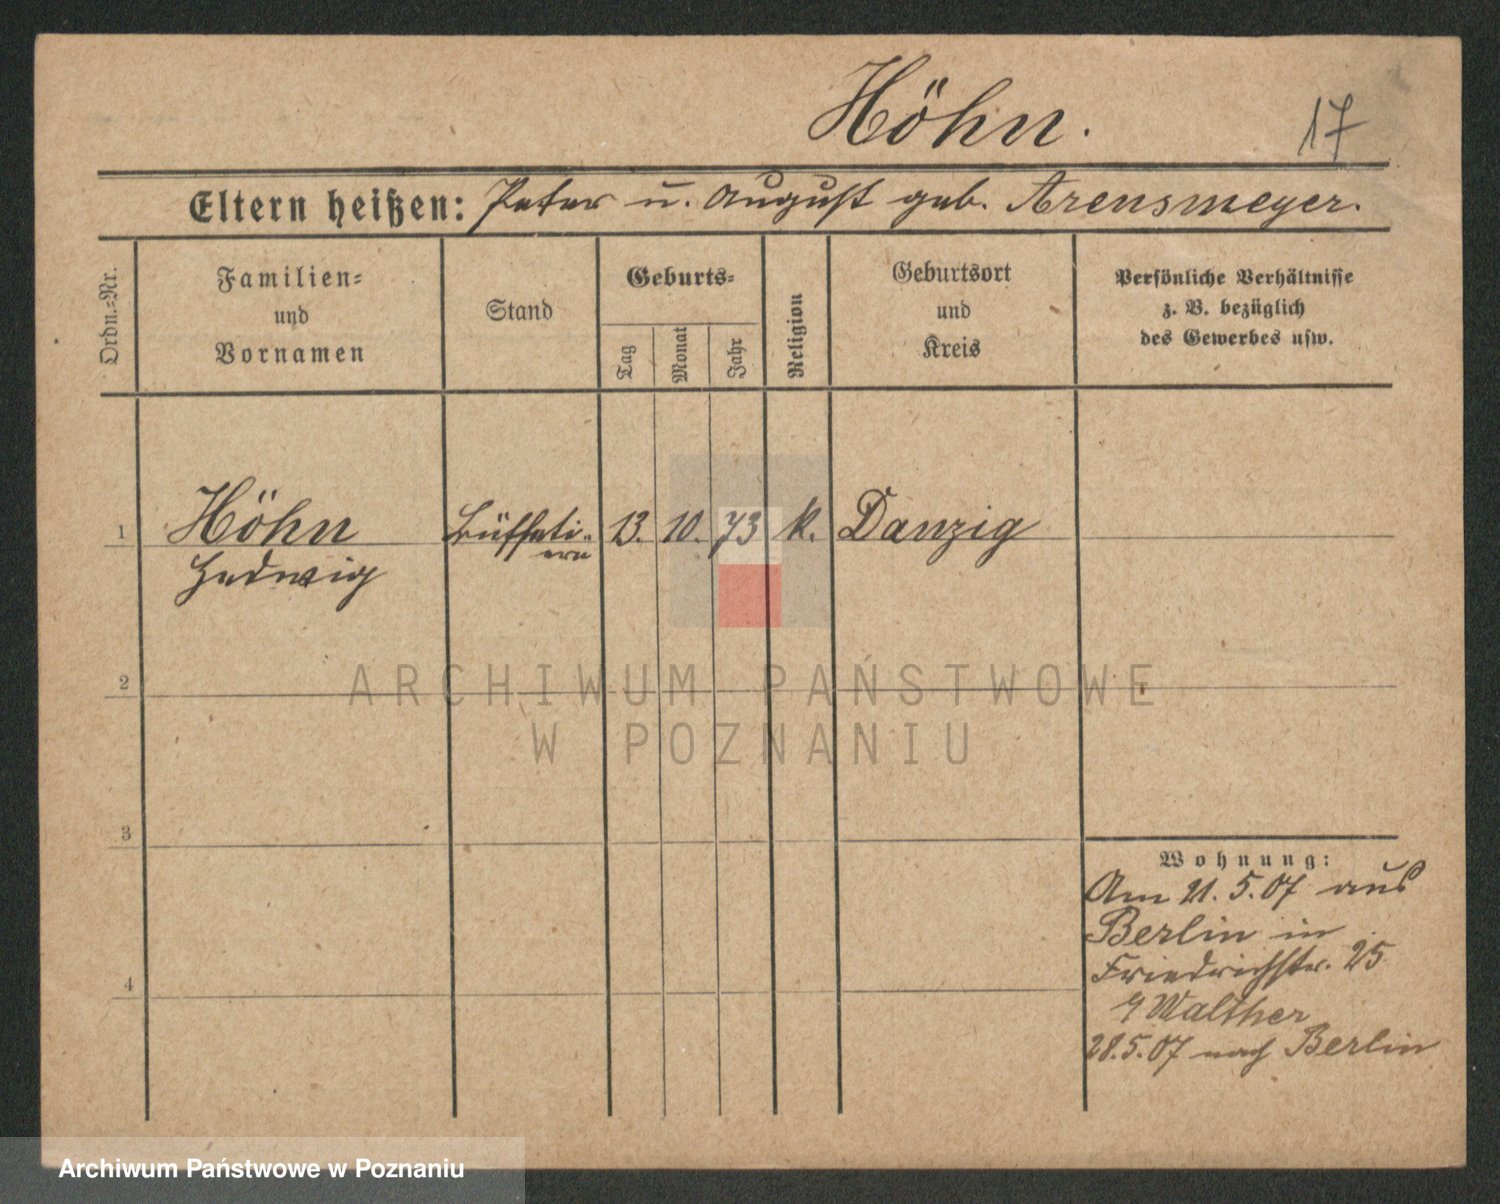 Höhn.
17
Eltern heißen: Peter u. August geb. Arensmeyer.
Ordn.-Nr.
Familien-
und
Vornamen
Stand
Geburts-
Tag
Monat
Jahr
Religion
Geburtsort
und
Kreis
Persönliche Verhältnisse
z. B. bezüglich
des Gewerbes usw.
1 Höhn Büffeti- 13. 10. 73 k. Danzig
ern
Hedwig
2
ARCHIWUM PAŃSTWOWE
W POZNANIU
3
Wohnung:
Am 21. 5. 07 aus
Berlin in
Friedrichstr. 25
4
Walther
28. 5. 07 nach Berlin
Archiwum Państwowe w Poznaniu